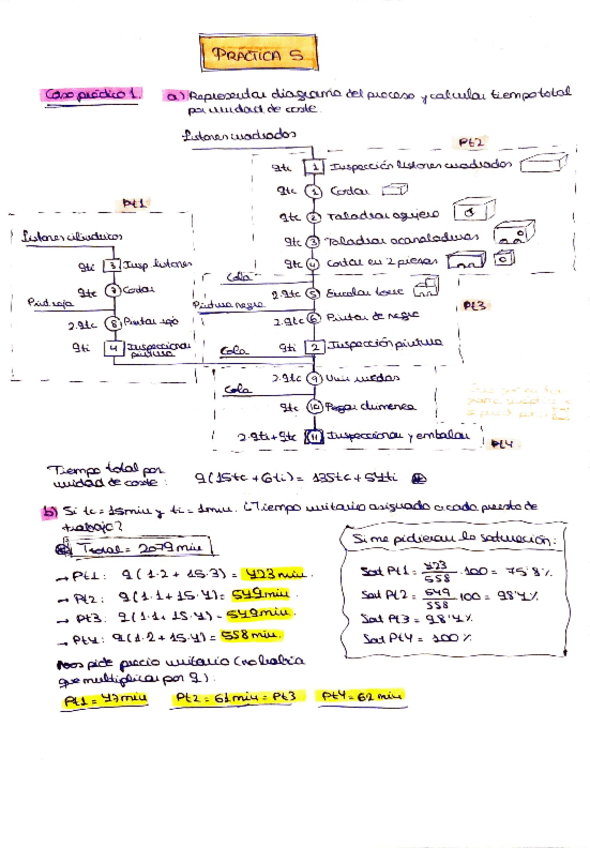 PRÁCTICA 5
Caso práctico 1. a) Representar diagrama del proceso y calcular tiempo total
por unidad de coste.
Listones cuadrados
Pt2
9tc 1 Inspección listones cuadrados
9tc 1 Cortar
9tc 2 Taladrar agujero
9tc 3 Taladrar acanaladuras
9tc 4 Cortar en 2 piezas
Pt1
Listones cilíndricos
9tc 3 Insp. listones
9tc 7 Cortar
Pint roja
2·9tc 8 Pintar rojo
9ti 4 Inspeccionar
pintura
Cola
2·9tc 5 Encolar
Pintura negra
2·9tc 6 Pintar de negro
Pt3
Cola 9ti 2 Inspección pintura
2·9tc 9 Unir ruedas
Cola
9tc 10 Pegar chimenea
2·9ti+9tc 11 Inspeccionar y embalar
Pt4
Tiempo total por
unidad de coste: 9(15tc+6ti) = 135tc+54ti
b) Si tc=15min y ti=1min. ¿Tiempo unitario asignado a cada puesto de
trabajo?
Ttotal = 2079min
→ Pt1: 9(1·2+15·3) = 423min.
→ Pt2: 9(1·1+15·4) = 549min.
→ Pt3: 9(1·1+15·4) = 549min.
→ Pt4: 9(1·2+15·4) = 558min.
Nos pide precio unitario (no había
que multiplicar por 9):
Pt1 = 47min Pt2 = 61min = Pt3 Pt4 = 62min
Si me pidieran la saturación:
Sat Pt1 = 423/558 ·100 = 75'8%.
Sat Pt2 = 549/558 100 = 98'4%
Sat Pt3 = 98'4%
Sat Pt4 = 100%